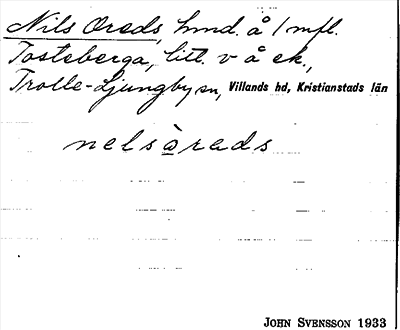 Nils Oreds, hmd. å 1 mfl.
Tosteberga, litt. v å ek.,
Trolle-Ljungby sn, Villands hd, Kristianstads län
nelsòreds
JOHN SVENSSON 1933